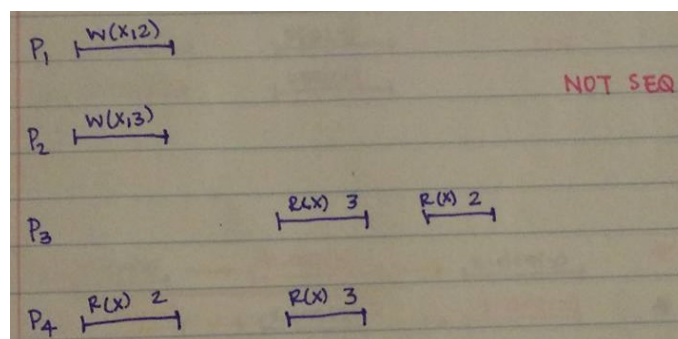 P1 W(X,2)
NOT SEQ
P2 W(X,3)
P3 R(X) 3 R(X) 2
P4 R(X) 2 R(X) 3